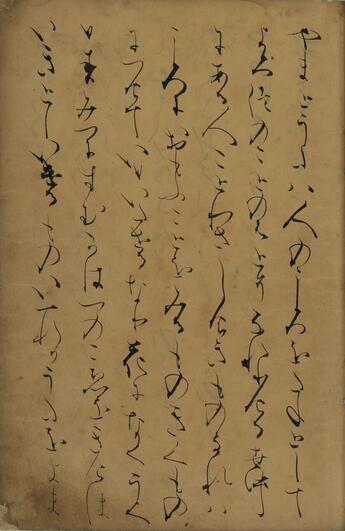 やまとうたは人のこゝろをたねとして
よろつのことのはとそなれりける世中
にある人ことわさしけきものなれは
こゝろにおもふことをみるものきくもの
につけていひいたせるなり花になくうく
ひすみつにすむかはつのこゑをきけは
いきとしいけるものいつれかうたをよま